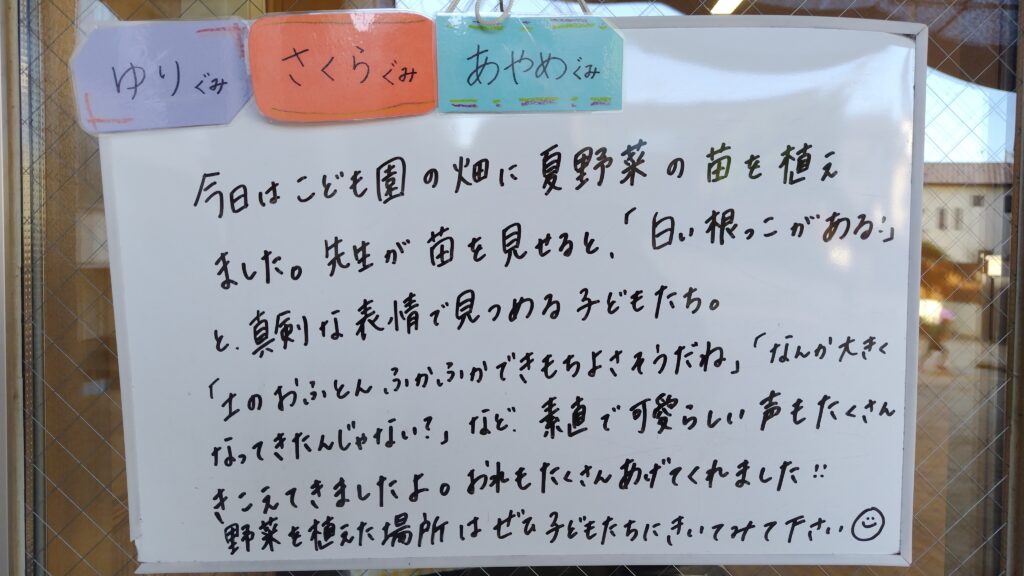 ゆりぐみ
さくらぐみ
あやめぐみ
今日はこども園の畑に夏野菜の苗を植え
ました。先生が苗を見せると、「白い根っこがある…」
と、真剣な表情で見つめる子どもたち。
「土のおふとん、ふかふかできもちよさそうだね」「なんか大きく
なってきたんじゃない?」など、素直で可愛らしい声もたくさん
きこえてきましたよ。お水もたくさんあげてくれました!!
野菜を植えた場所はぜひ子どもたちにきいてみて下さい